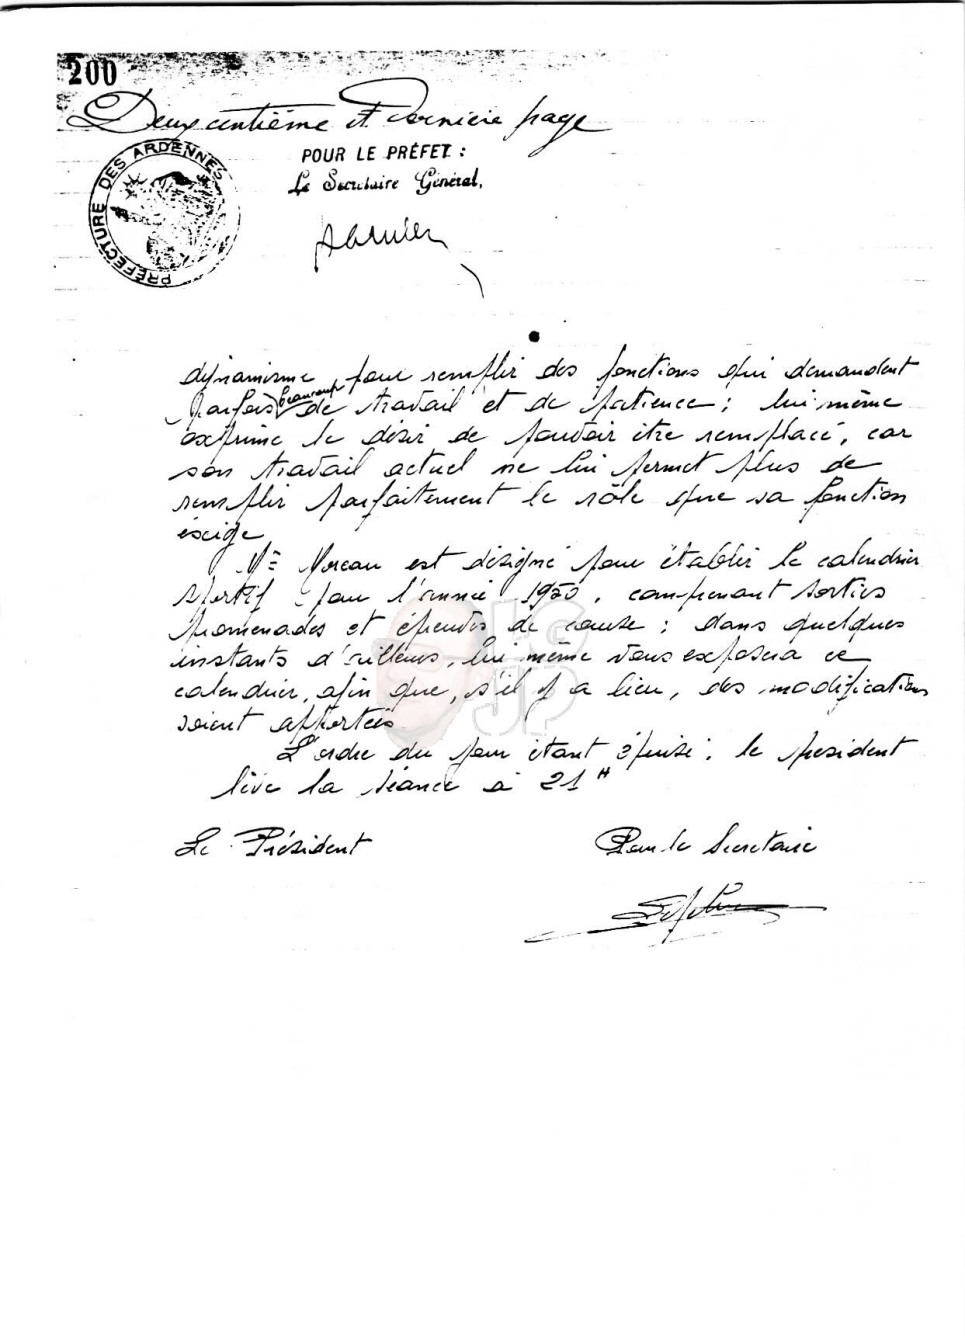 200
Deux centième et dernière page
PRÉFECTURE DES ARDENNES
POUR LE PRÉFET :
Le Secrétaire Général,
dynamisme pour remplir des fonctions qui demandent
parfois beaucoup de travail et de patience ; lui même
exprime le désir de pouvoir être remplacé, car
son travail actuel ne lui permet plus de
remplir parfaitement le rôle que sa fonction
éxige
Mr Moreau est désigné pour établir le calendrier
sportif pour l'année 1950, comprenant sorties
promenades et épreuves de course ; dans quelques
instants d'ailleurs, lui même vous exposera ce
calendrier, afin que, s'il y a lieu, des modifications
soient apportées
L'ordre du jour étant épuisé, le président
lève la séance à 21 H
Le Président
Pour le Secrétaire
JP